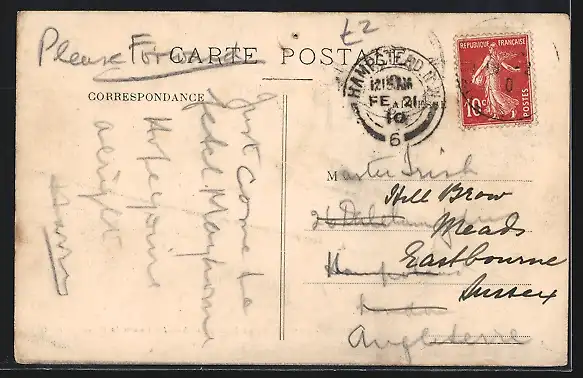 £2
Please Forward
CARTE POSTALE
HAMPSTEAD. N.W.
12.15 AM
FE 21
10
6
REPUBLIQUE FRANÇAISE
10c
POSTES
CORRESPONDANCE
Just come to
Hope you're
alright
Master Irish
Hill Brow
Meads
Eastbourne
Sussex
26
Hampstead
London
Angleterre